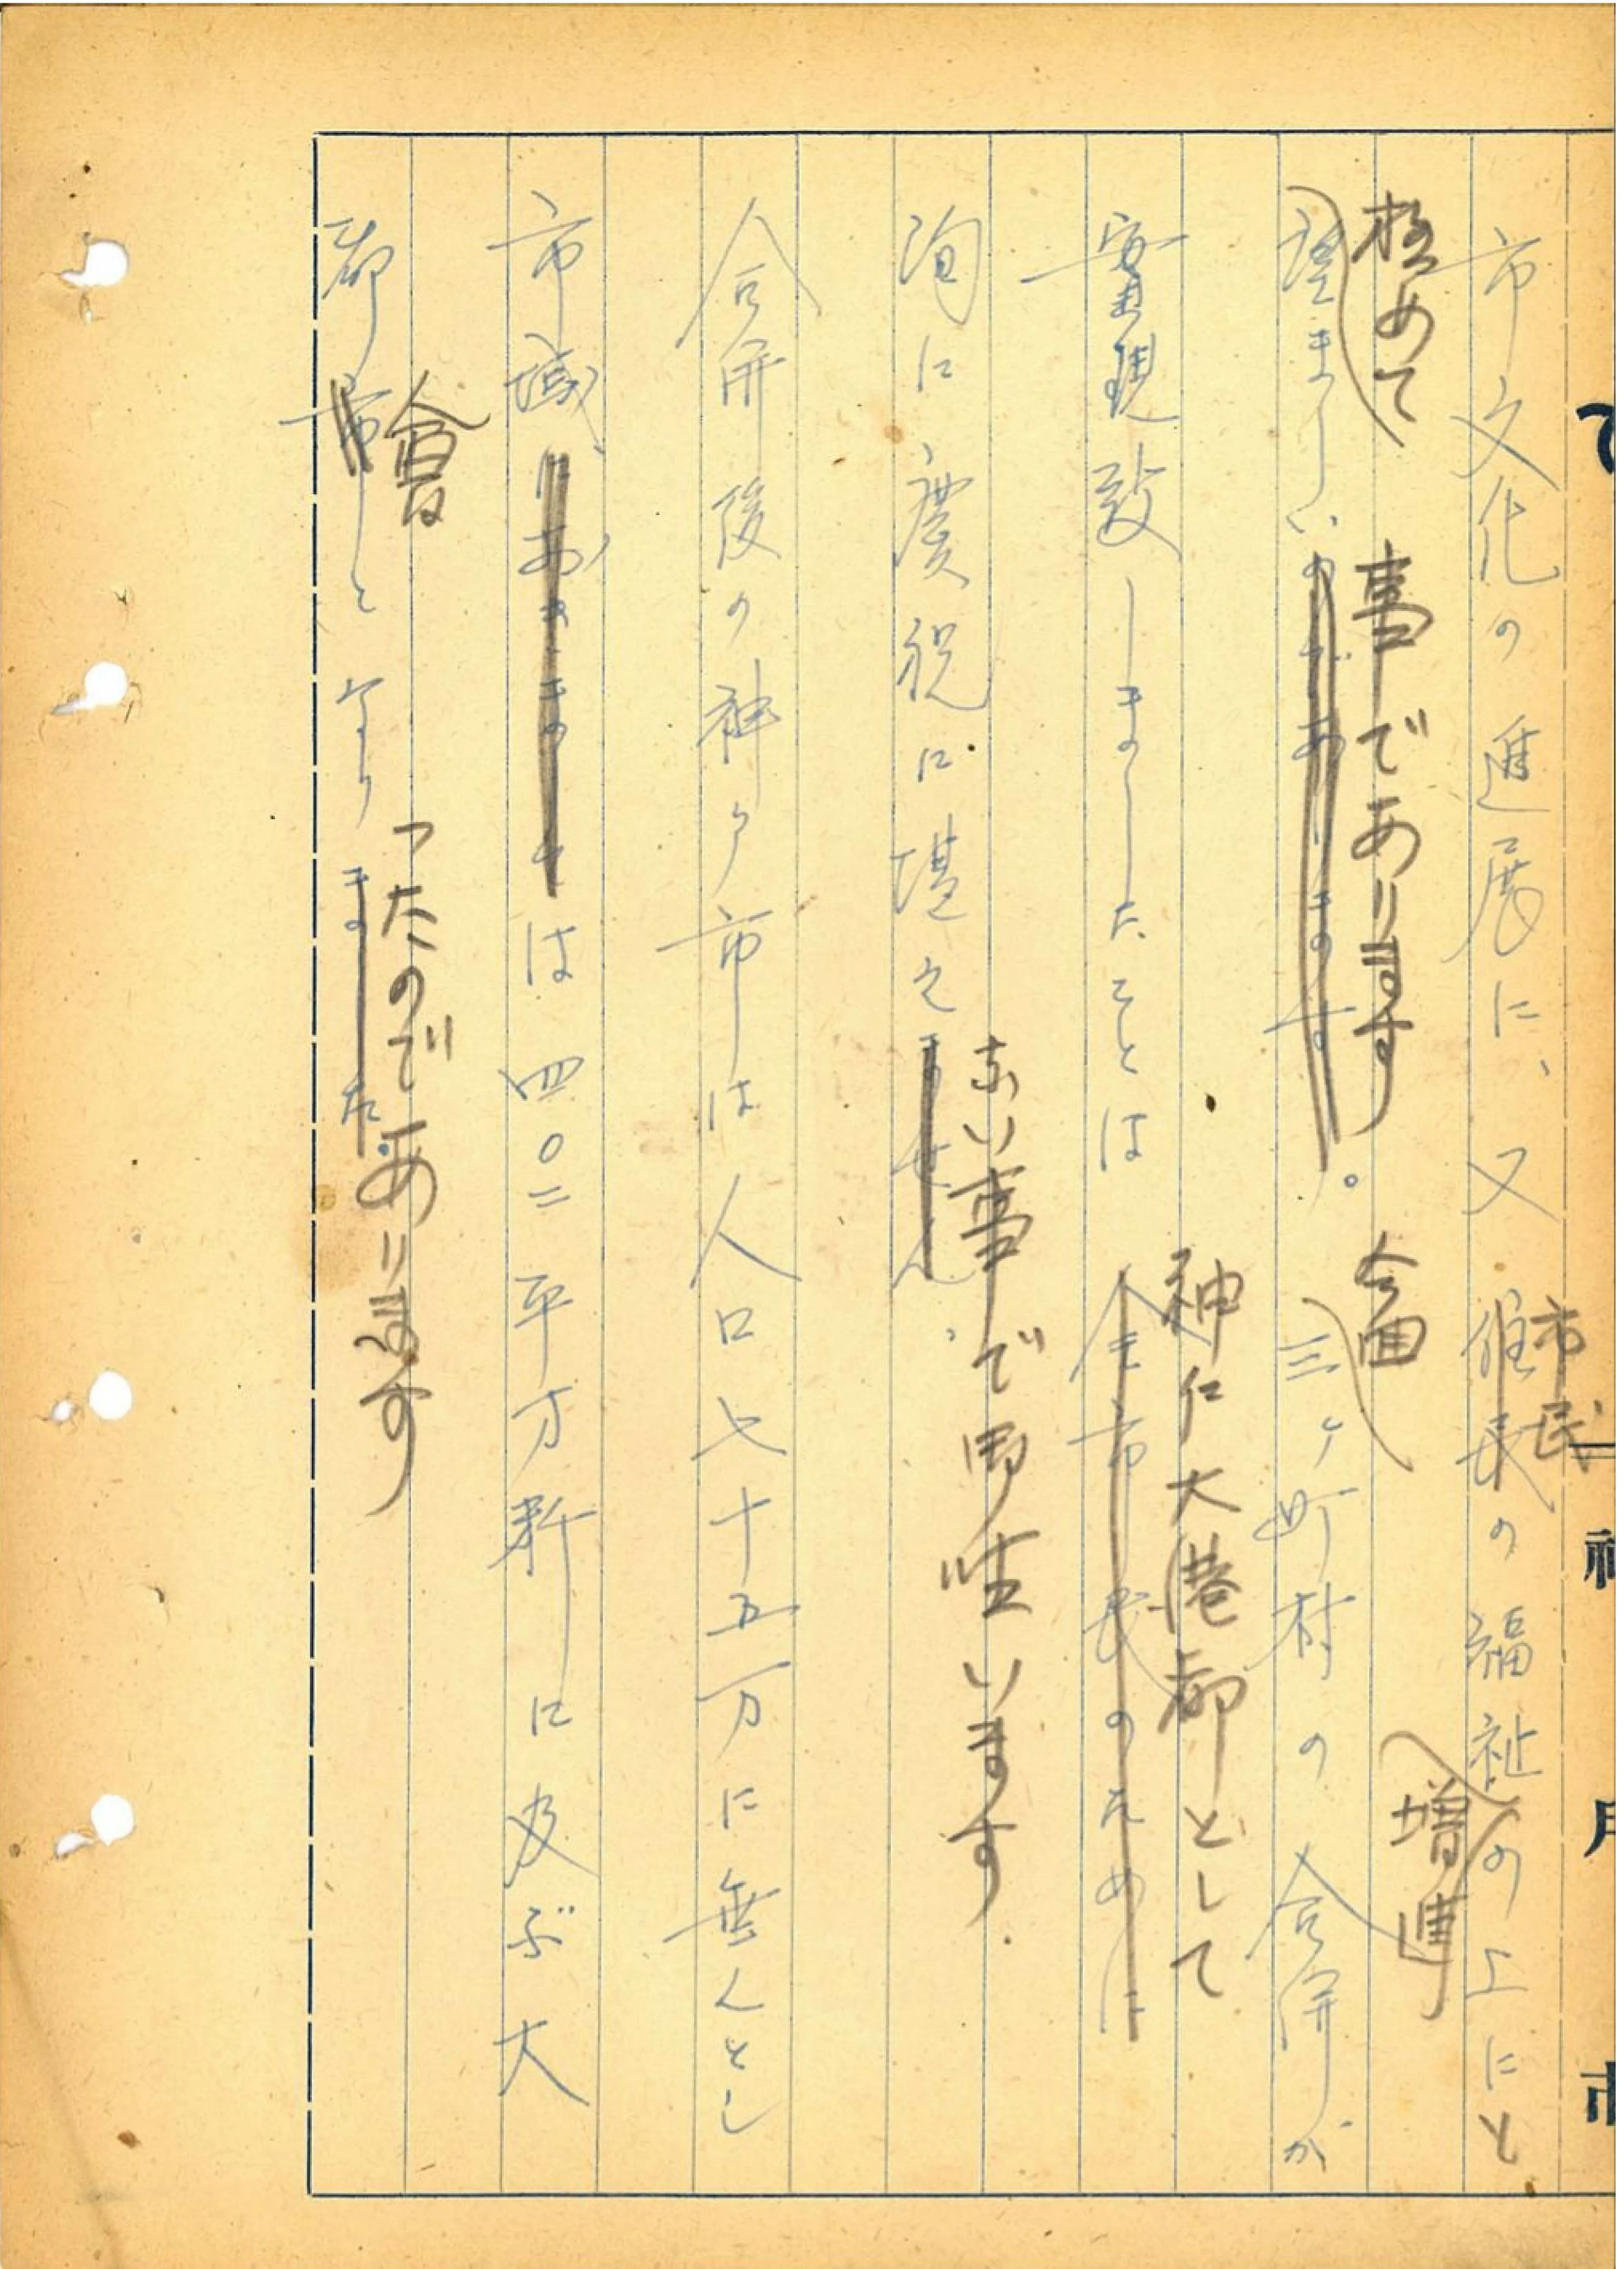 市民
市文化の進展に、又住民の福祉の上にと
増進
極めて 事であります 今回
望ましいのであります。三ヶ町村の合併が
神仁大港都として
実現致しましたことは全市民のために
ない事で御座います.
洵に慶祝に堪えません、
合併後の神戸市は人口七十五万に無んとし
市域におきましては四〇二平方粁に及ぶ大
會 ったのであります
都市となりました。
神戸市